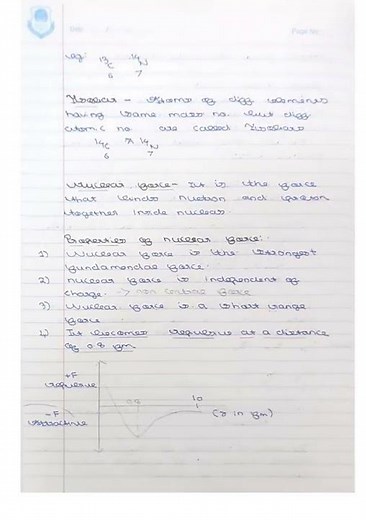 eg: 13C 6 14N 7
Isobar - Atoms of diff elements
having same mass no. but diff
atomic no are called Isobars
14C 6 & 14N 7
Nuclear force - It is the force
that binds neutron and proton
together inside nucleus.
Properties of nuclear force:
1) Nuclear force is the strongest
fundamental force.
2) nuclear force is independent of
charge. -> non central force
3) Nuclear force is a short range
force
4) It becomes repulsive at a distance
of 0.8 fm
+F
repulsive
0.8
10
(r in fm)
-F
attractive